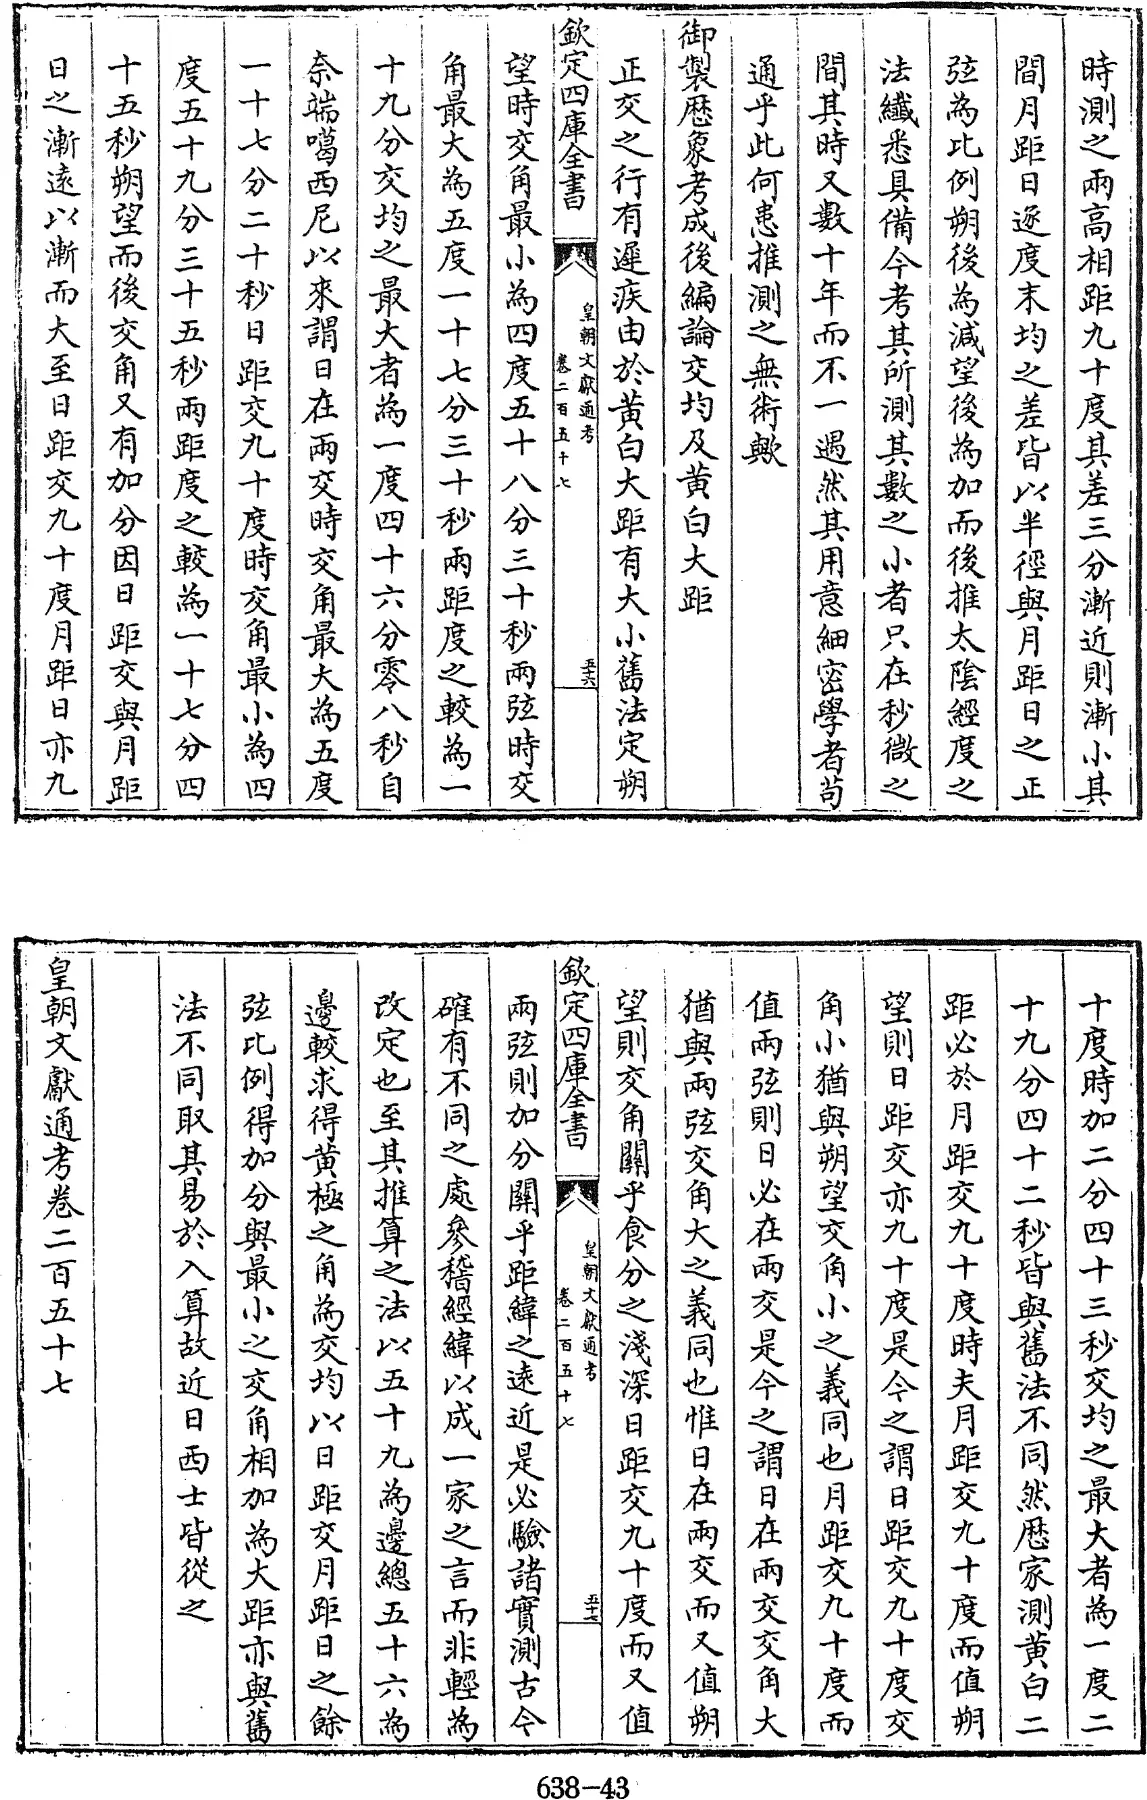 時測之兩高相距九十度其差三分漸近則漸小其
間月距日逐度末均之差皆以半徑與月距日之正
弦為比例朔後為減望後為加而後推太陰經度之
法纖悉具備今考其所測其數之小者只在秒微之
間其時又數十年而不一遇然其用意細密學者苟
通乎此何患推測之無術歟
御製歷象考成後編論交均及黃白大距
正交之行有遲疾由於黃白大距有大小舊法定朔
欽定四庫全書
皇朝文獻通考
卷二百五十七
五六
望時交角最小為四度五十八分三十秒兩弦時交
角最大為五度一十七分三十秒兩距度之較為一
十九分交均之最大者為一度四十六分零八秒自
奈端噶西尼以來謂日在兩交時交角最大為五度
一十七分二十秒日距交九十度時交角最小為四
度五十九分三十五秒兩距度之較為一十七分四
十五秒朔望而後交角又有加分因日距交與月距
日之漸遠以漸而大至日距交九十度月距日亦九
十度時加二分四十三秒交均之最大者為一度二
十九分四十二秒皆與舊法不同然歷家測黃白二
距必於月距交九十度時夫月距交九十度而值朔
望則日距交亦九十度是今之謂日距交九十度交
角小猶與朔望交角小之義同也月距交九十度而
值兩弦則日必在兩交是今之謂日在兩交交角大
猶與兩弦交角大之義同也惟日在兩交而又值朔
望則交角關乎食分之淺深日距交九十度而又值
欽定四庫全書
皇朝文獻通考
卷二百五十七
五七
兩弦則加分關乎距緯之遠近是必驗諸實測古今
確有不同之處參稽經緯以成一家之言而非輕為
改定也至其推算之法以五十九為邊總五十六為
邊較求得黃極之角為交均以日距交月距日之餘
弦比例得加分與最小之交角相加為大距亦與舊
法不同取其易於入算故近日西士皆從之
皇朝文獻通考卷二百五十七
638-43